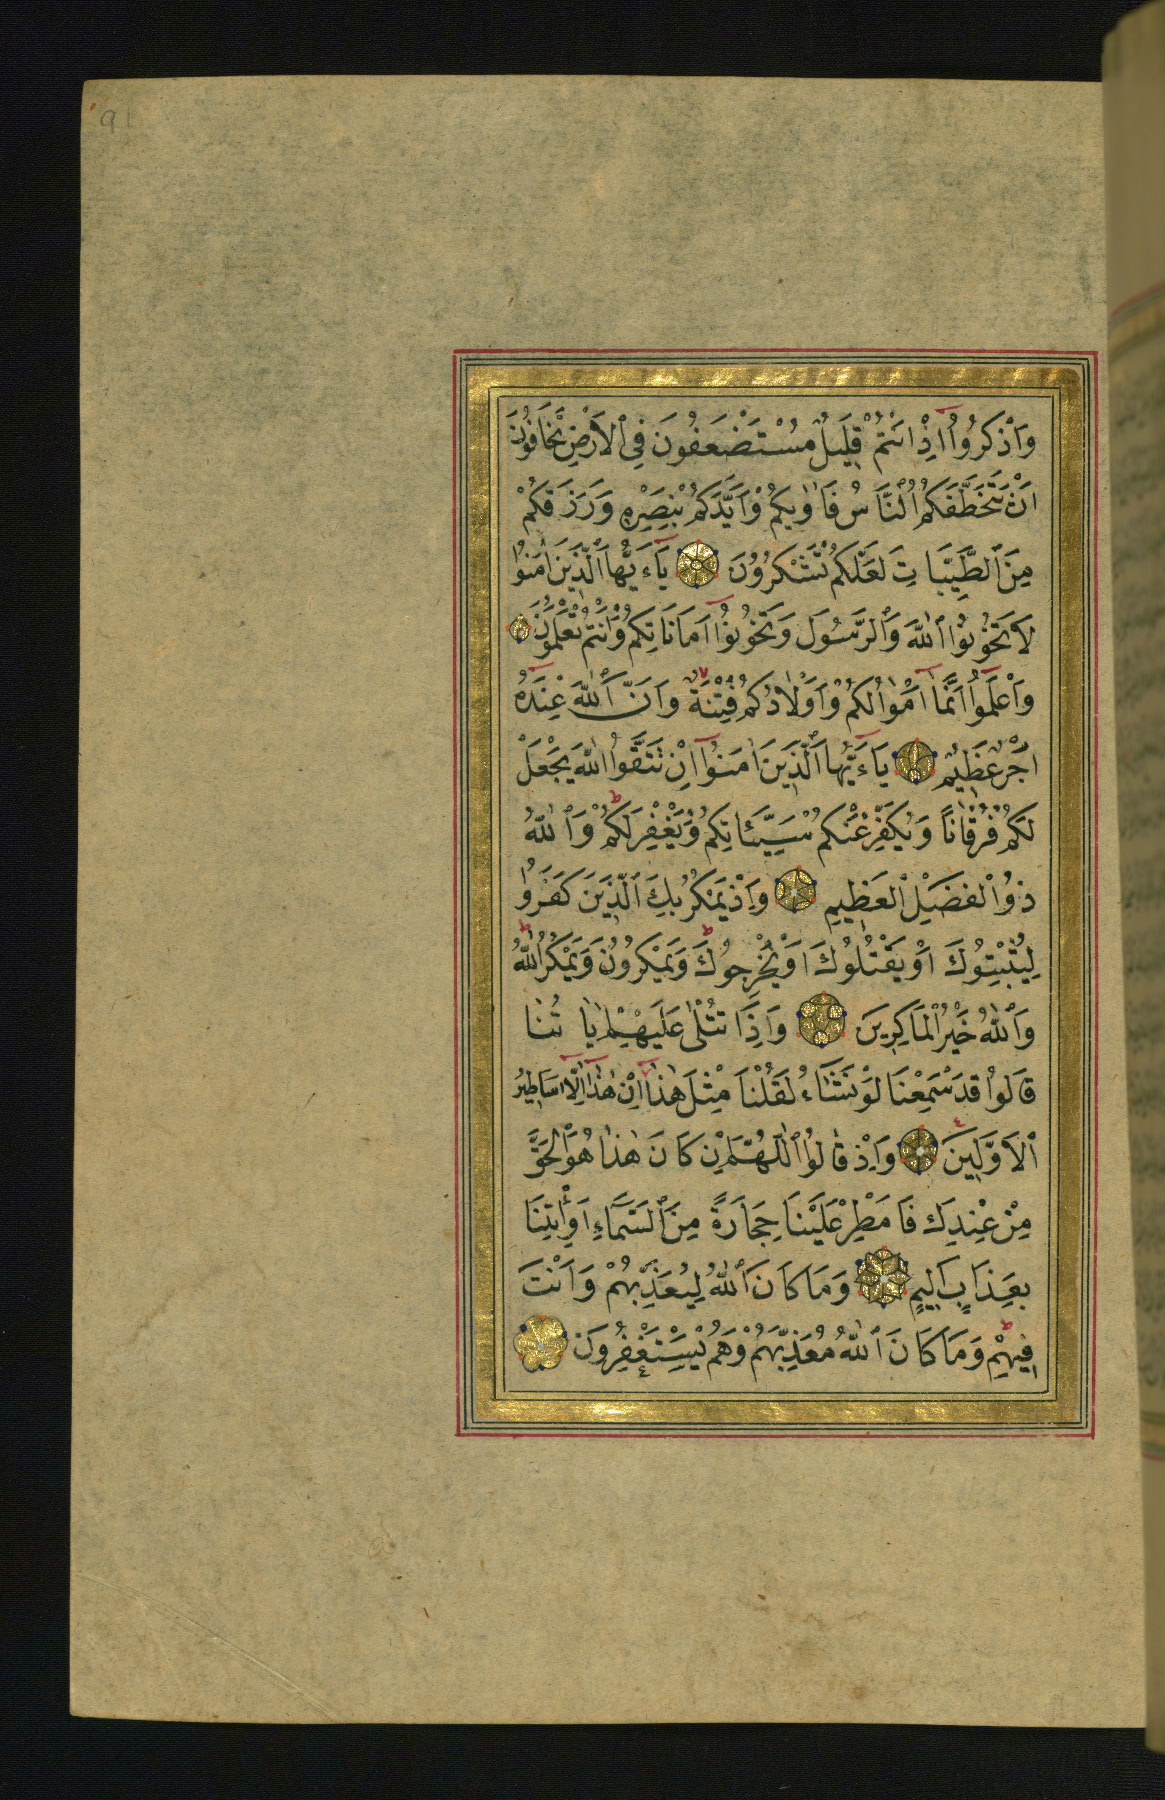 91
وَاذْكُرُوا اِذْ اَنْتُمْ قَلِيلٌ مُسْتَضْعَفُونَ فِي الْاَرْضِ تَخَافُونَ
اَنْ يَتَخَطَّفَكُمُ النَّاسُ فَاٰوٰيكُمْ وَاَيَّدَكُمْ بِنَصْرِهِ وَرَزَقَكُمْ
مِنَ الطَّيِّبَاتِ لَعَلَّكُمْ تَشْكُرُونَ يَاءَيُّهَا الَّذِينَ اٰمَنُوا
لَا تَخُونُوا اللّٰهَ وَالرَّسُولَ وَتَخُونُوا اَمَانَاتِكُمْ وَاَنْتُمْ تَعْلَمُونَ
وَاعْلَمُوا اَنَّمَا اَمْوَالُكُمْ وَاَوْلَادُكُمْ فِتْنَةٌ وَاَنَّ اللّٰهَ عِنْدَهُ
اَجْرٌ عَظِيمٌ يَاءَيُّهَا الَّذِينَ اٰمَنُوا اِنْ تَتَّقُوا اللّٰهَ يَجْعَلْ
لَكُمْ فُرْقَانًا وَيُكَفِّرْ عَنْكُمْ سَيِّئَاتِكُمْ وَيَغْفِرْ لَكُمْ ط وَاللّٰهُ
ذُو الْفَضْلِ الْعَظِيمِ وَاِذْ يَمْكُرُ بِكَ الَّذِينَ كَفَرُوا
لِيُثْبِتُوكَ اَوْ يَقْتُلُوكَ اَوْ يُخْرِجُوكَ ط وَيَمْكُرُونَ وَيَمْكُرُ اللّٰهُ ط
وَاللّٰهُ خَيْرُ الْمَاكِرِينَ وَاِذَا تُتْلٰى عَلَيْهِمْ اٰيَاتُنَا
قَالُوا قَدْ سَمِعْنَا لَوْ نَشَاءُ لَقُلْنَا مِثْلَ هٰذَا اِنْ هٰذَا اِلَّا اَسَاطِيرُ
الْاَوَّلِينَ وَاِذْ قَالُوا اللّٰهُمَّ اِنْ كَانَ هٰذَا هُوَ الْحَقَّ
مِنْ عِنْدِكَ فَاَمْطِرْ عَلَيْنَا حِجَارَةً مِنَ السَّمَاءِ اَوِ ائْتِنَا
بِعَذَابٍ اَلِيمٍ وَمَا كَانَ اللّٰهُ لِيُعَذِّبَهُمْ وَاَنْتَ
فِيهِمْ ط وَمَا كَانَ اللّٰهُ مُعَذِّبَهُمْ وَهُمْ يَسْتَغْفِرُونَ